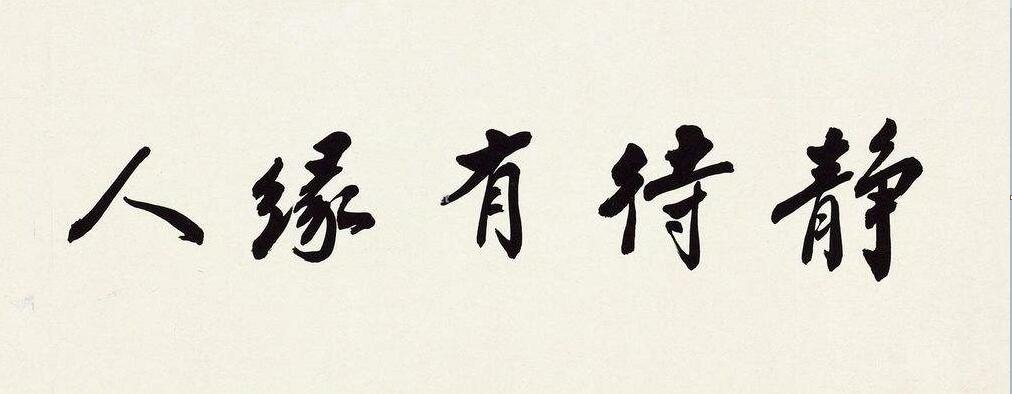 静待有缘人